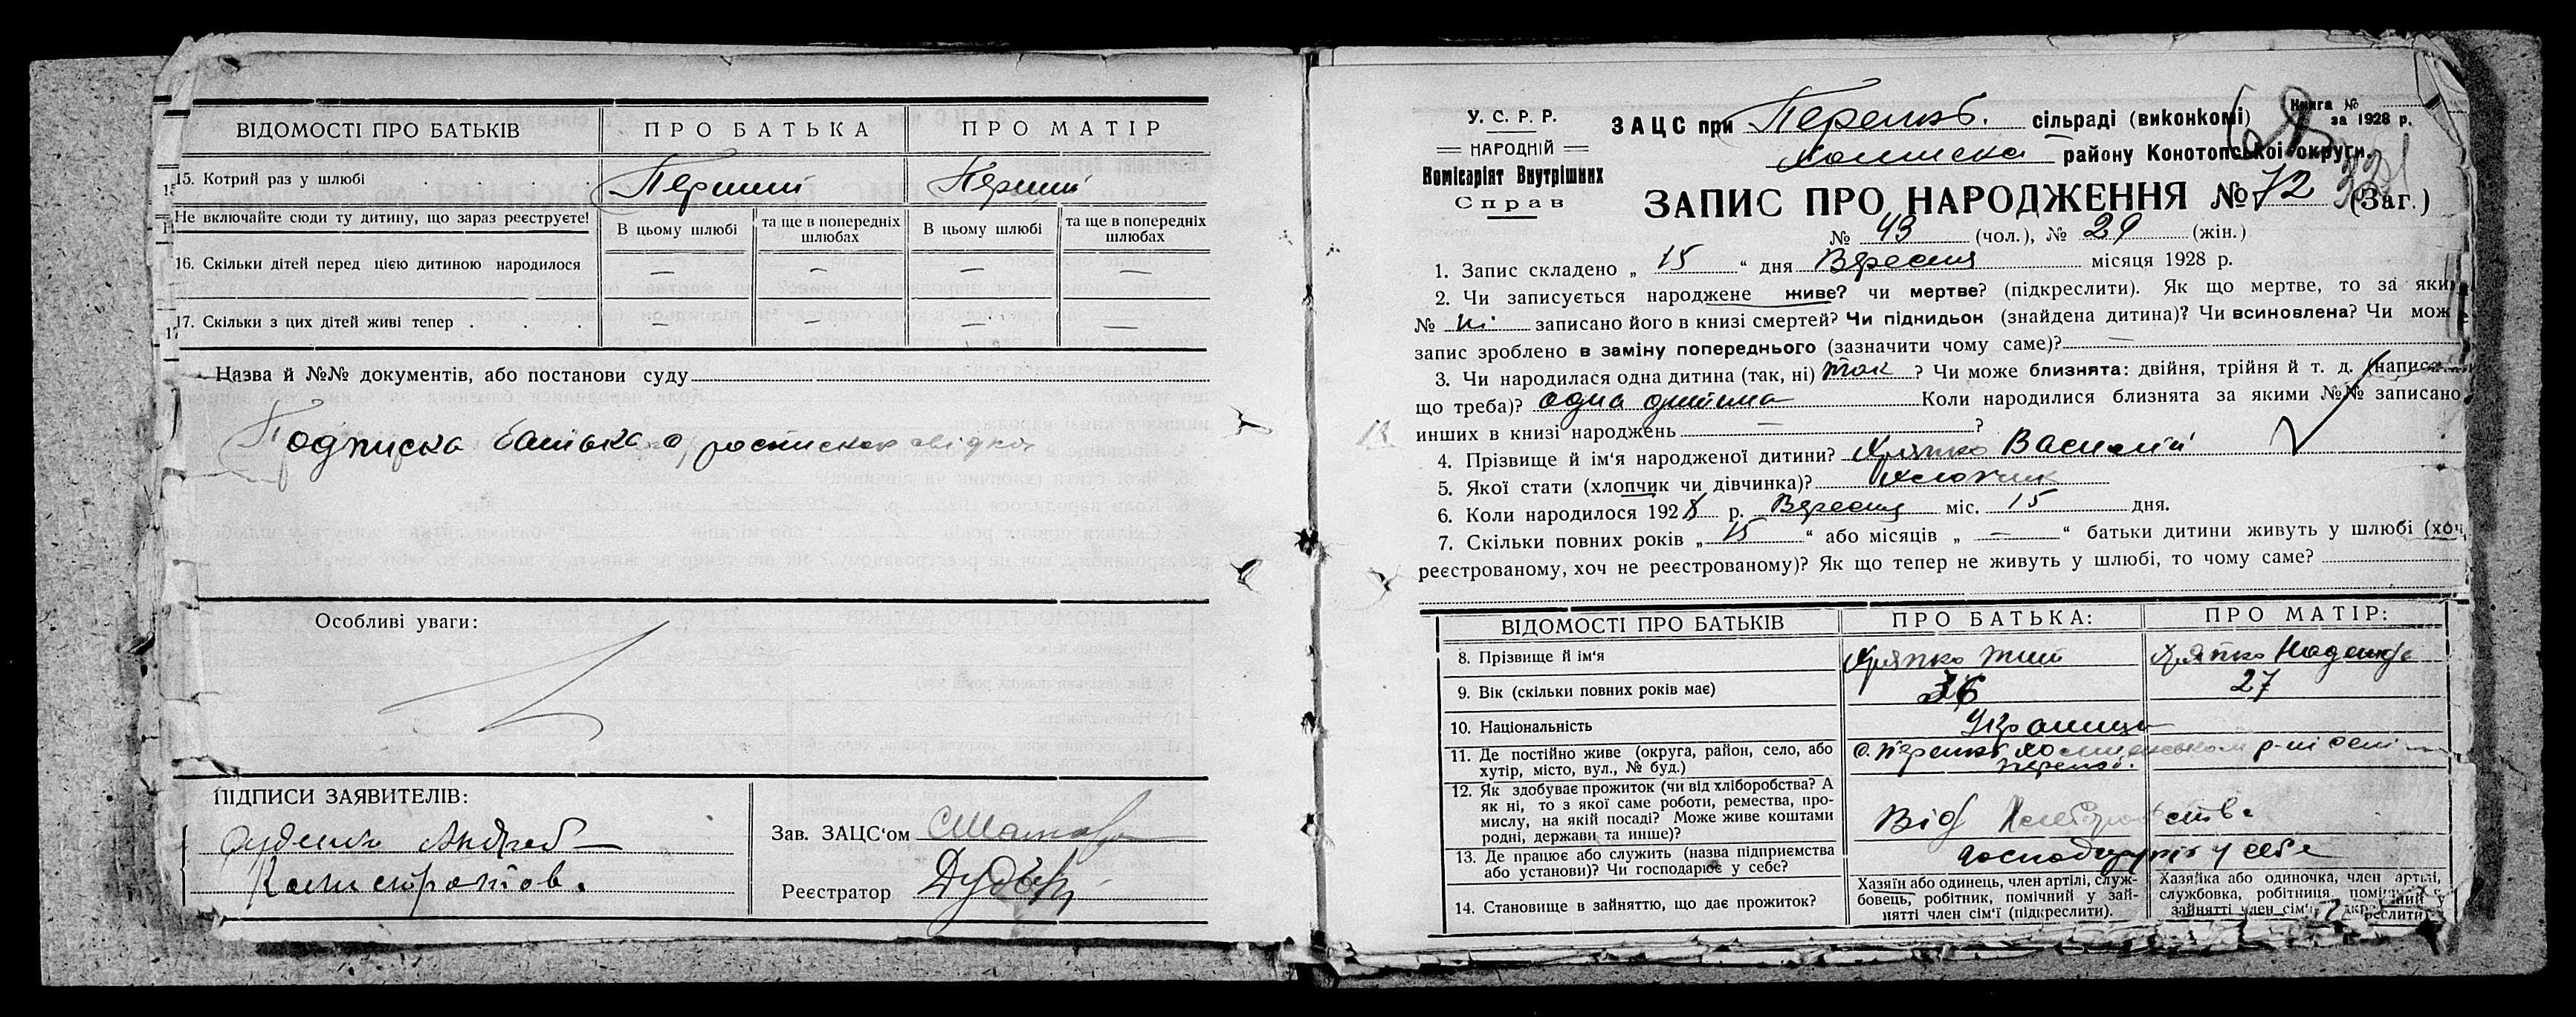 ВІДОМОСТІ ПРО БАТЬКІВ
ПРО БАТЬКА
ПРО МАТІР
15. Котрий раз у шлюбі
Перший
Перший
Не включайте сюди ту дитину, що зараз реєструєте!
В цьому шлюбі
та ще в попередніх шлюбах
В цьому шлюбі
та ще в попередніх шлюбах
16. Скільки дітей перед цією дитиною народилося
— — — —
17. Скільки з цих дітей живі тепер
— — — —
Назва й №№ документів, або постанови суду
Подписка батька
Особливі уваги:
ПІДПИСИ ЗАЯВИТЕЛІВ:
Зав. ЗАЦС'ом
Реєстратор
У. С. Р. Р.
НАРОДНІЙ
Комісаріят Внутрішних
Справ
Книга №
за 1928 р.
ЗАЦС при сільраді (виконкомі)
району Конотопської округи.
ЗАПИС ПРО НАРОДЖЕННЯ № 72 (Заг.)
№ 43 (чол.), № 29 (жін.)
1. Запис складено „ 15 “ дня Вересня місяця 1928 р.
2. Чи записується народжене живе? чи мертве? (підкреслити). Як що мертве, то за яким
№ ні записано його в книзі смертей? Чи підкидьок (знайдена дитина)? Чи всиновлена? Чи може
запис зроблено в заміну попереднього (зазначити чому саме)? —
3. Чи народилася одна дитина (так, ні) так ? Чи може близнята: двійня, трійня й т. д. (написа
що треба)? одна дитина Коли народилися близнята за якими №№ записано
инших в книзі народжень — ?
4. Прізвище й ім'я народженої дитини? Хряпко Василій
5. Якої стати (хлопчик чи дівчинка)? Хлопчик
6. Коли народилося 1928 р. Вересня міс. 15 дня.
7. Скільки повних років „ 15 “ або місяців „ — “ батьки дитини живуть у шлюбі (хоч,
реєстрованому, хоч не реєстрованому)? Як що тепер не живуть у шлюбі, то чому саме?
ВІДОМОСТІ ПРО БАТЬКІВ
ПРО БАТЬКА:
ПРО МАТІР:
8. Прізвище й ім'я
Хряпко
Хряпко Надежда
9. Вік (скільки повних років має)
36
27
10. Національність
Українці
11. Де постійно живе (округа, район, село, або
хутір, місто, вул., № буд.)
12. Як здобуває прожиток (чи від хліборобства? А
як ні, то з якої саме роботи, ремества, про-
мислу, на якій посаді? Може живе коштами
родні, держави та инше)?
Від Хліборобства
13. Де працює або служить (назва підприємства
або установи)? Чи господарює у себе?
у себе
14. Становище в зайняттю, що дає прожиток?
Хазяїн або одинець, член артілі, служ-
бовець, робітник, помічний у зай-
нятті член сім'ї (підкреслити).
Хазяйка або одиночка, член артілі,
службовка, робітниця,